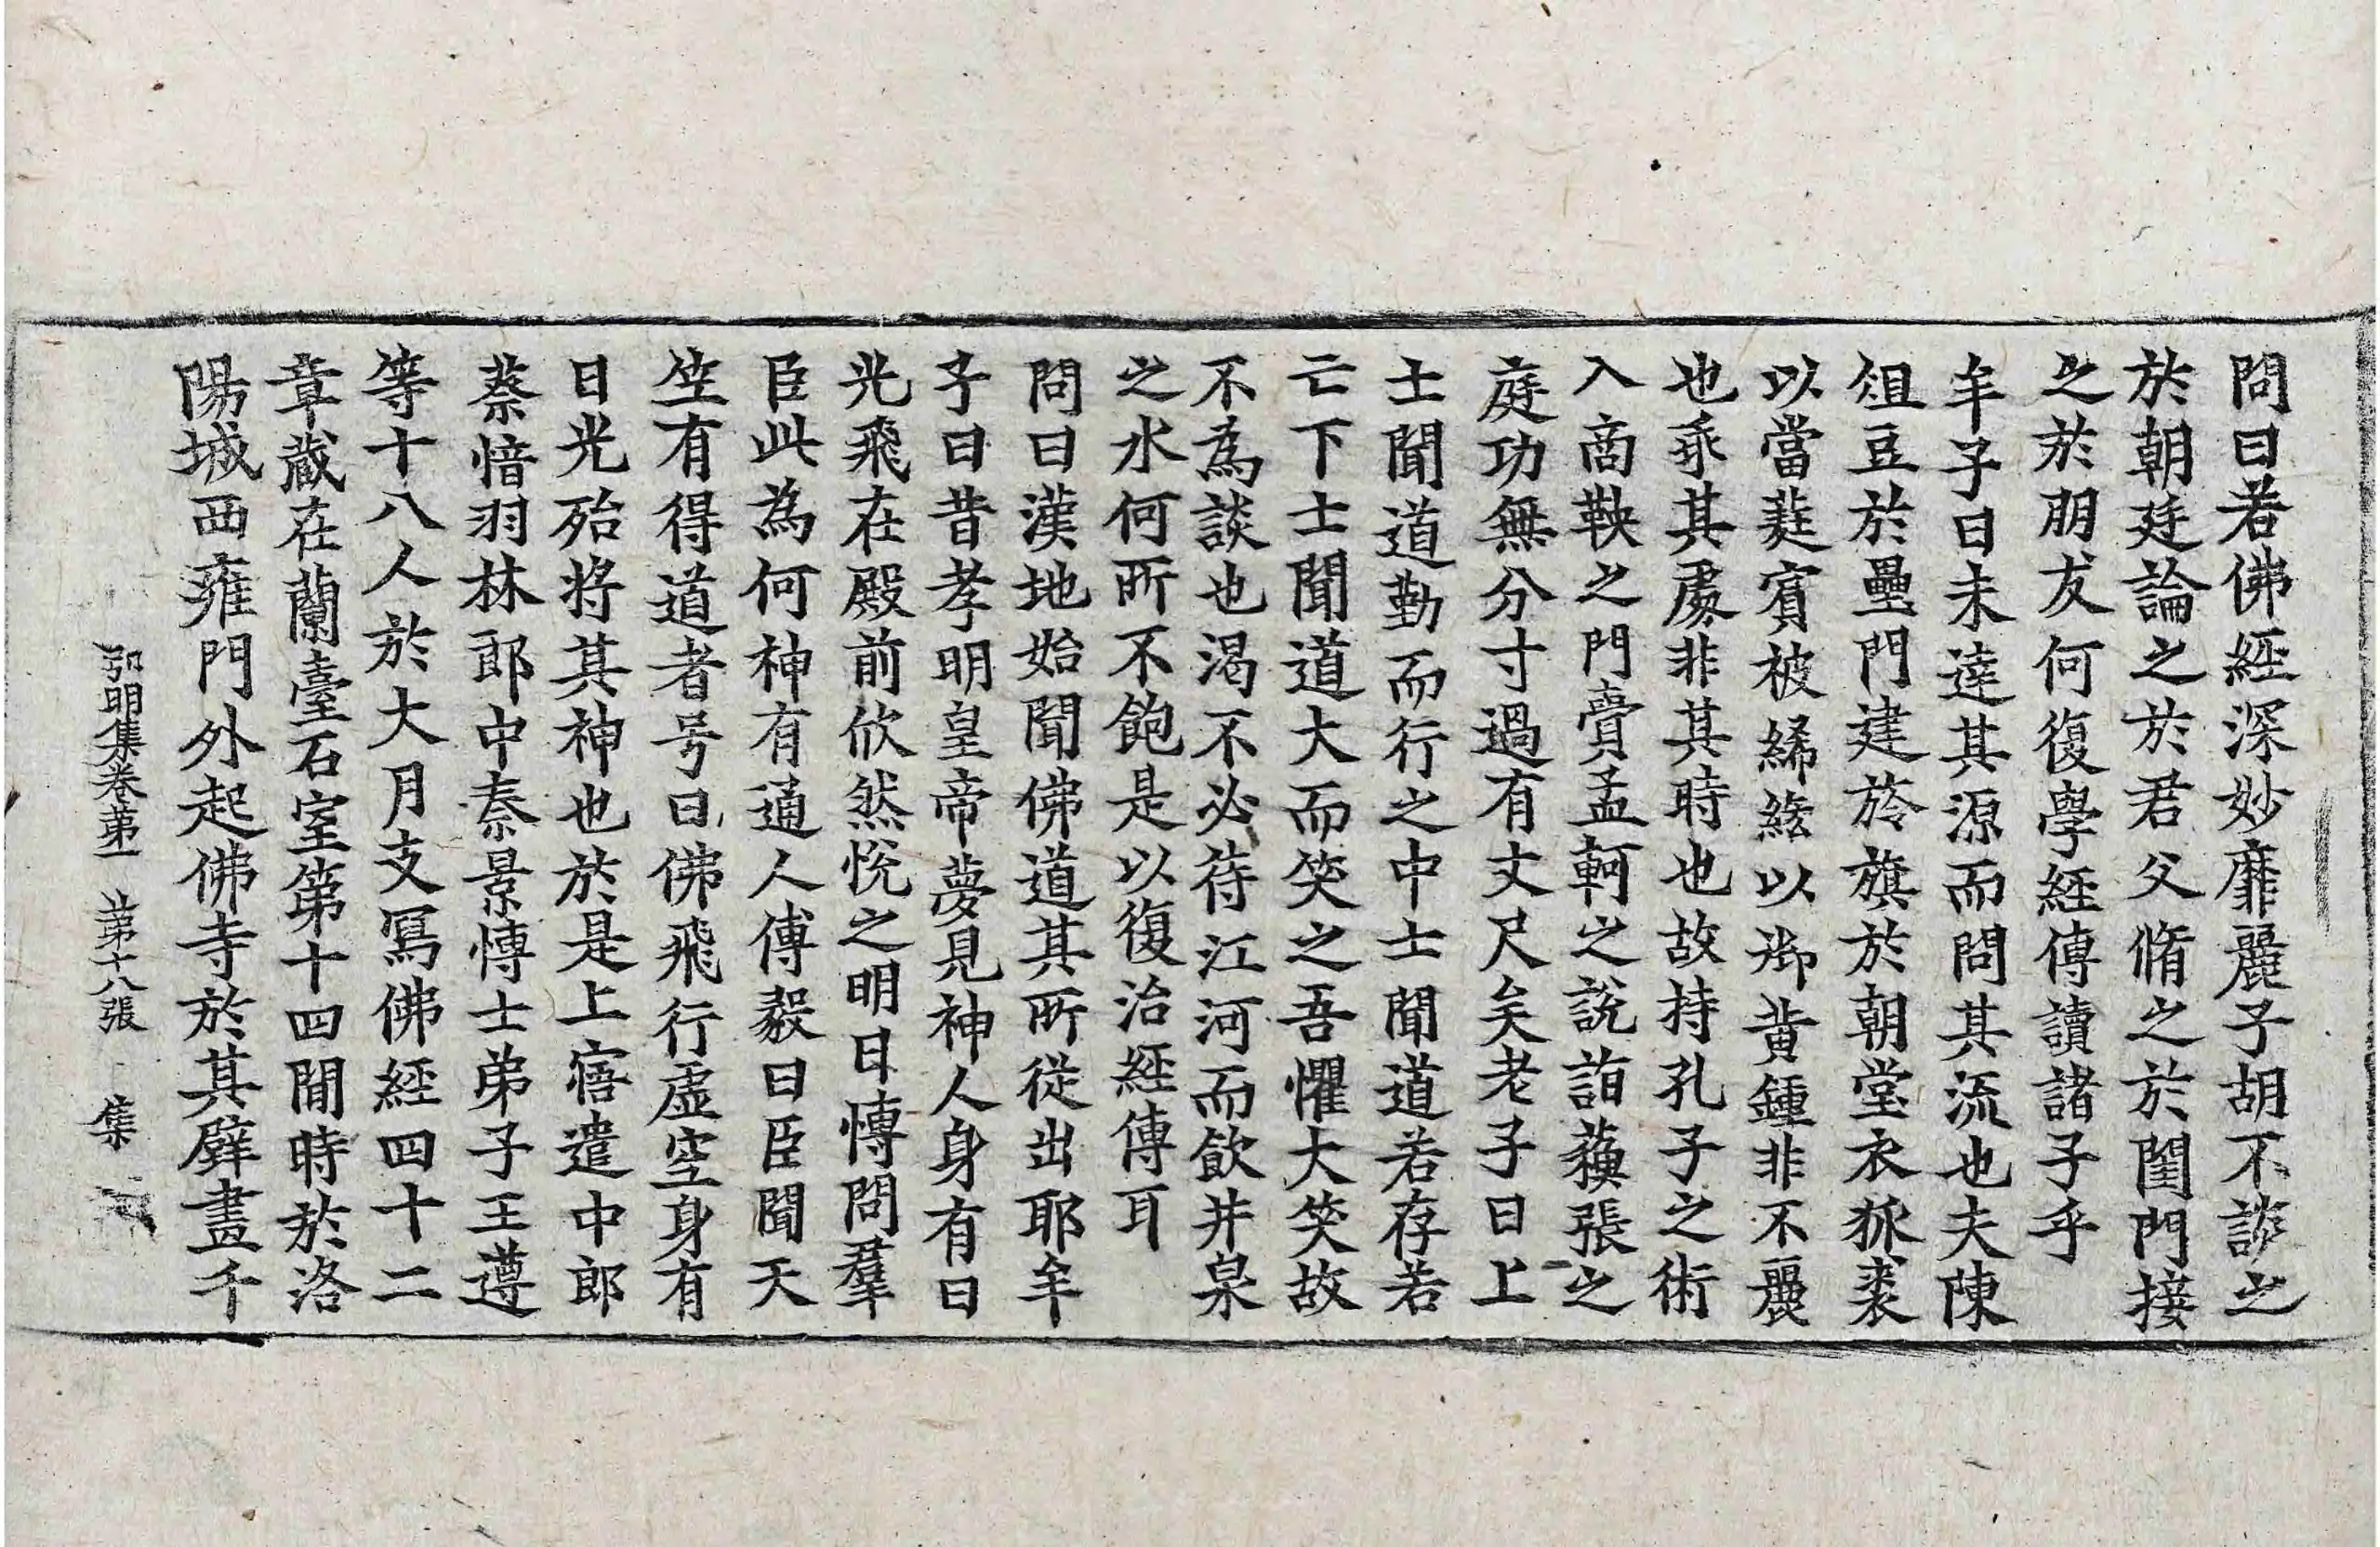 問曰若佛經深妙靡麗子胡不談之
於朝廷論之於君父脩之於閨門接
之於朋友何復學經傳讀諸子乎
牟子曰未達其源而問其流也夫陳
俎豆於壘門建旍旗於朝堂衣狐裘
以當蕤賓被絺綌以御黃鍾非不麗
也乖其處非其時也故持孔子之術
入商鞅之門賷孟軻之說詣蘓張之
庭功無分寸過有丈尺矣老子曰上
士聞道勤而行之中士聞道若存若
亡下士聞道大而笑之吾懼大笑故
不為談也渴不必待江河而飲井泉
之水何所不飽是以復治經傳耳
問曰漢地始聞佛道其所從出耶牟
子曰昔孝明皇帝夢見神人身有日
光飛在殿前欣然悅之明日愽問羣
臣此為何神有通人傅毅曰臣聞天
竺有得道者号曰佛飛行虛空身有
日光殆將其神也於是上寤遣中郎
蔡愔羽林郎中秦景愽士弟子王遵
等十八人於大月支寫佛經四十二
章藏在蘭臺石室第十四間時於洛
陽城西雍門外起佛寺於其壁畫千
弘明集卷第一 第十八張 集